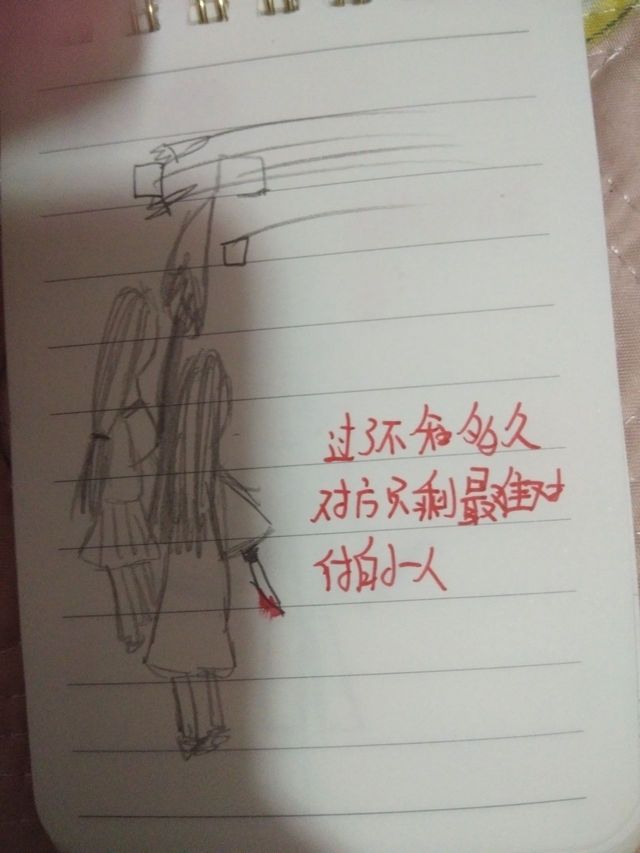 过了不知多久
对方只剩最难对
付自小一人